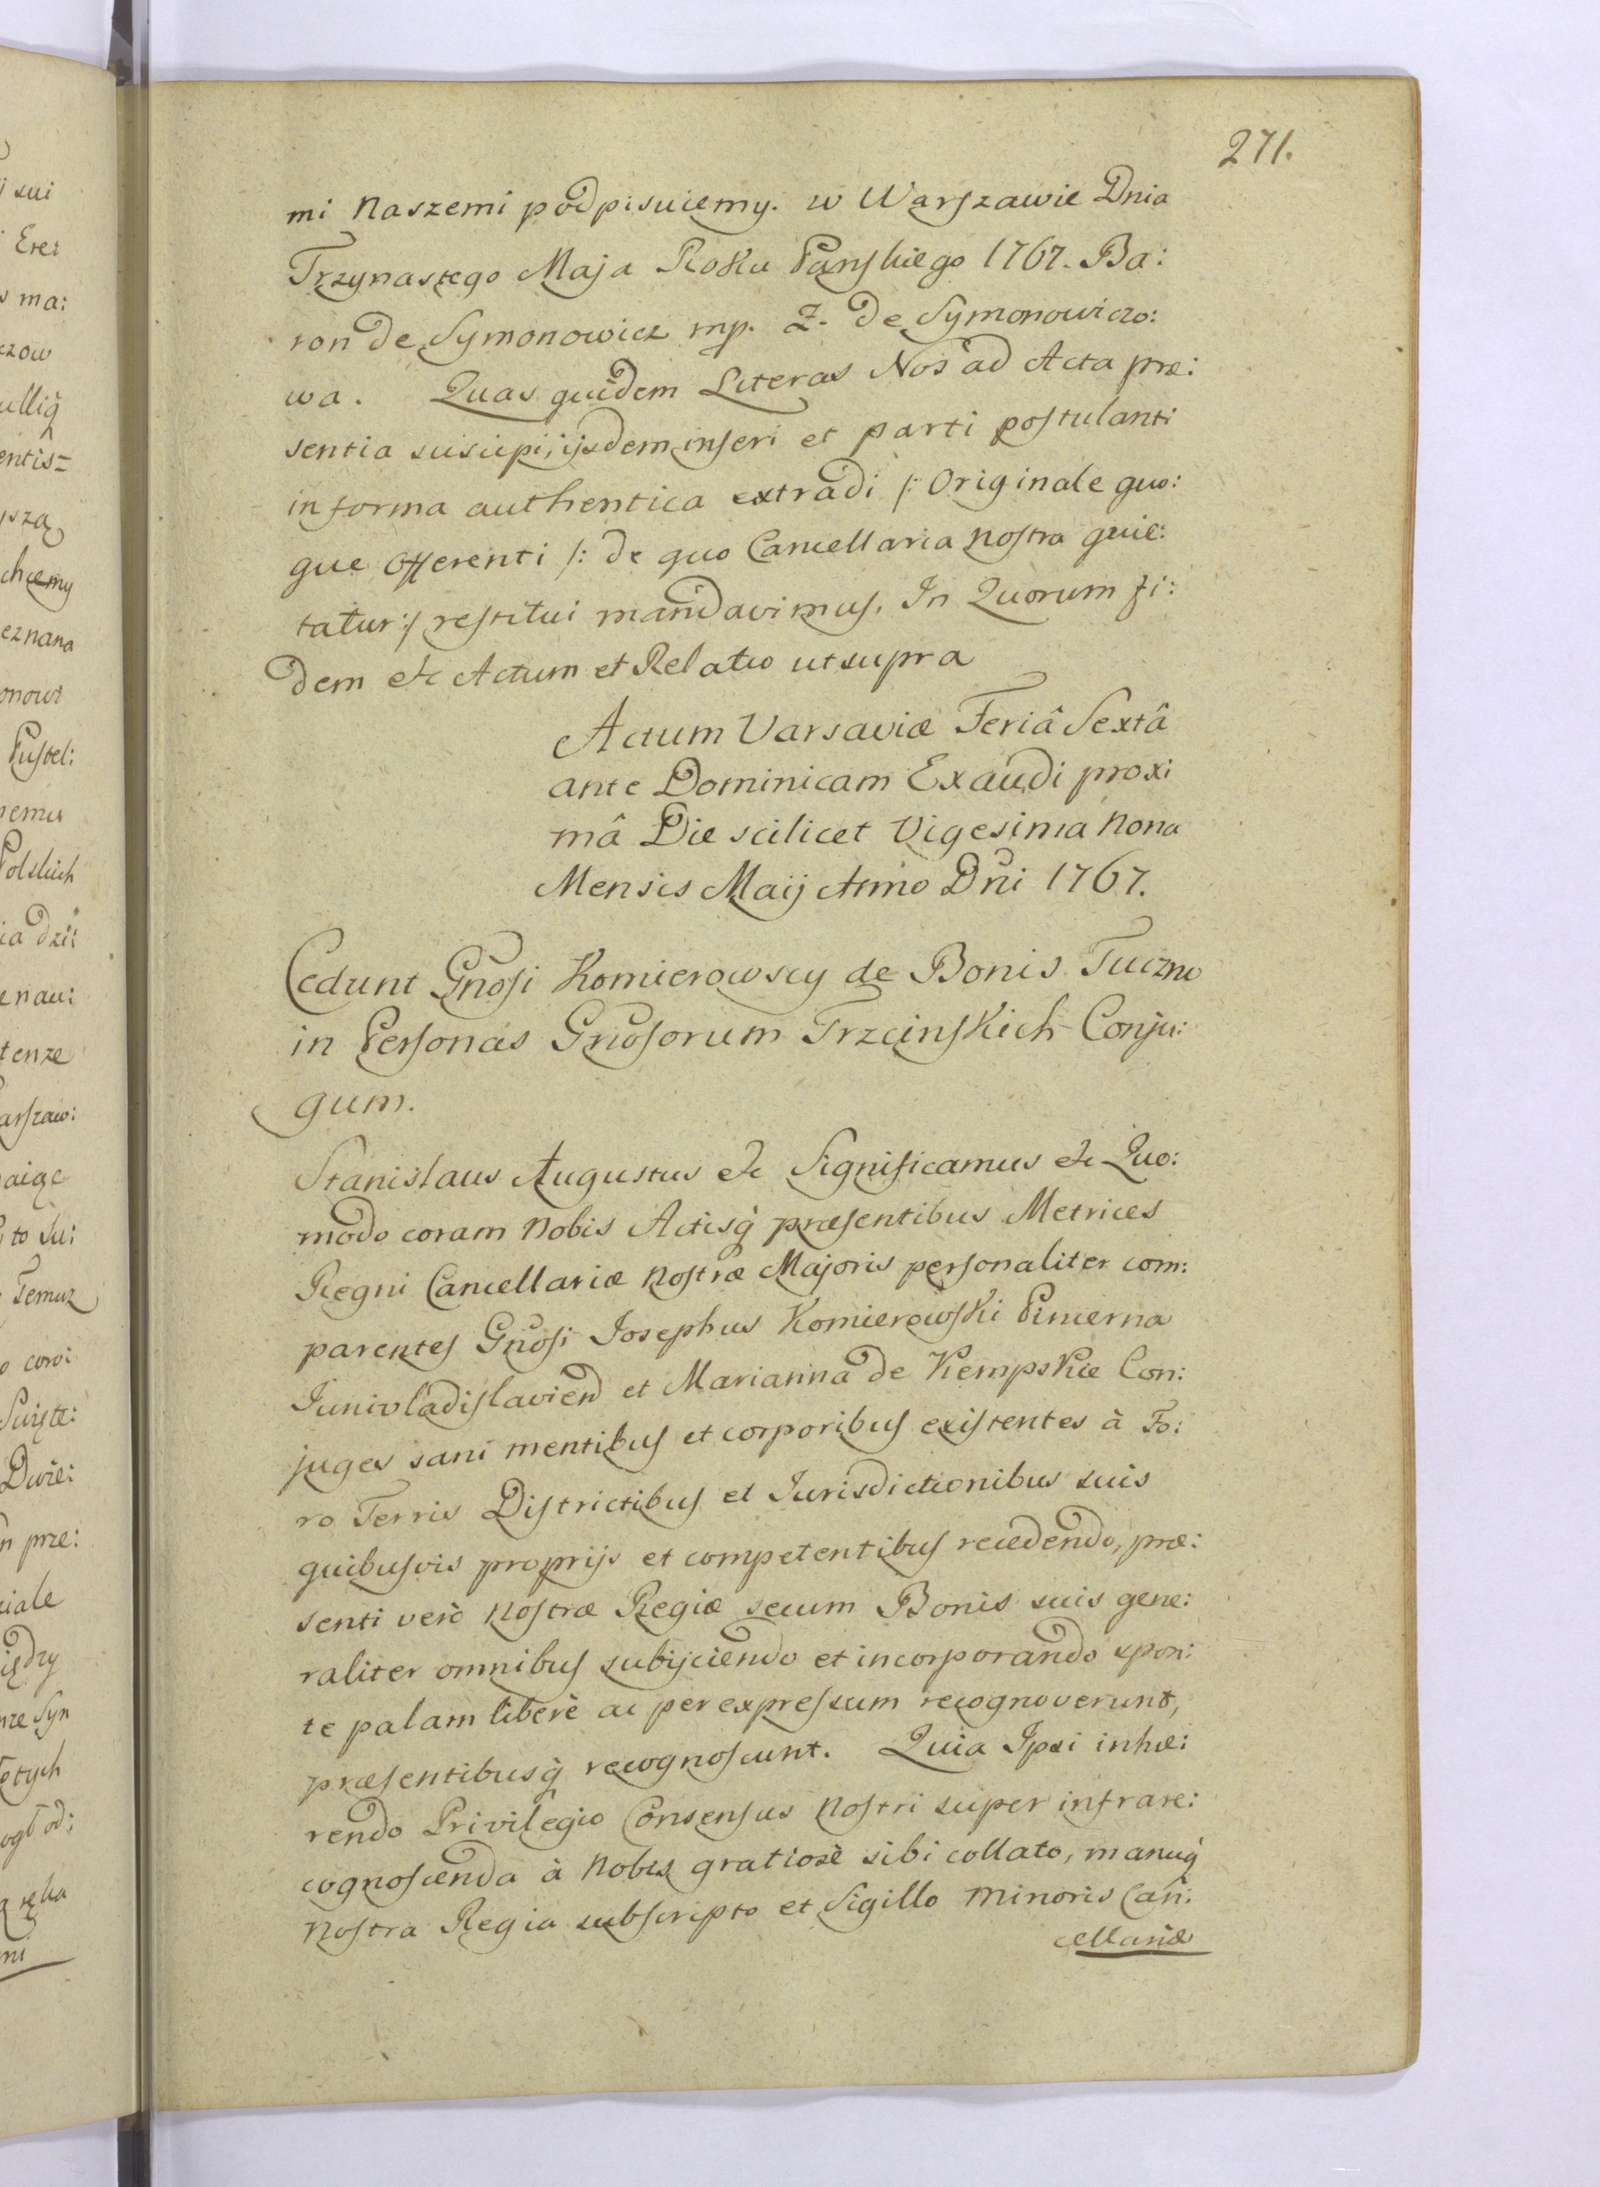 271.
mi naszemi podpisuiemy. w Warszawie Dnia
Trzynastego Maja Roku Pańskiego 1767. Ba:
ron de Symonowicz mp. Z. de Symonowiczo:
wa. Quas quidem Literas Nos ad Acta præ:
sentia suscipi, ijsdem inseri et parti postulanti
in forma authentica extradi /: Originale quo:
que Offerenti /: de quo Cancellaria nostra quie:
tatur :/ restitui mandavimus. In Quorum fi:
dem etc Actum et Relatio ut supra
Actum Varsaviæ Feriâ Sextâ
ante Dominicam Exaudi proxi
mâ Die scilicet Vigesima nona
Mensis Maij Anno Dni 1767.
Cedunt Gnosi Komierowscy de Bonis Tuczno
in Personas Gnosorum Trzcinskich Conju:
gum.
Stanislaus Augustus etc Significamus etc Quo:
modo coram Nobis Actisq̃ præsentibus Metrices
Regni Cancellariæ nostræ Majoris personaliter com:
parentes Gnosi Josephus Komierowski Pincerna
Junivladislavien et Marianna de Kempskie Con:
juges sani mentibus et corporibus existentes à Fo:
ro Terris Districtibus et Jurisdictionibus suis
quibusvis proprijs et competentibus recedendo, præ:
senti verò nostræ Regiæ secum Bonis suis gene:
raliter omnibus subijciendo et incorporando spon:
te palam liberè ac per expressum recognoverunt,
præsentibusq̃ recognoscunt. Quia Ipsi inhæ:
rendo Privilegio Consensus nostri super infrare:
cognoscenda à Nobis gratiosè sibi collato, manuq̃
nostra Regia subscripto et Sigillo minoris Can:
cellariæ